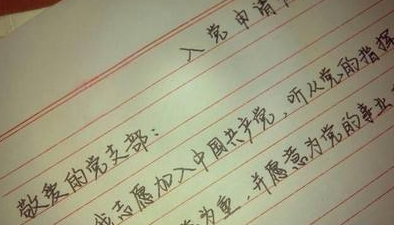 入党申请
敬爱的党支部:
我志愿加入中國共产党,听从党的指挥
为重,并愿意为党的事业